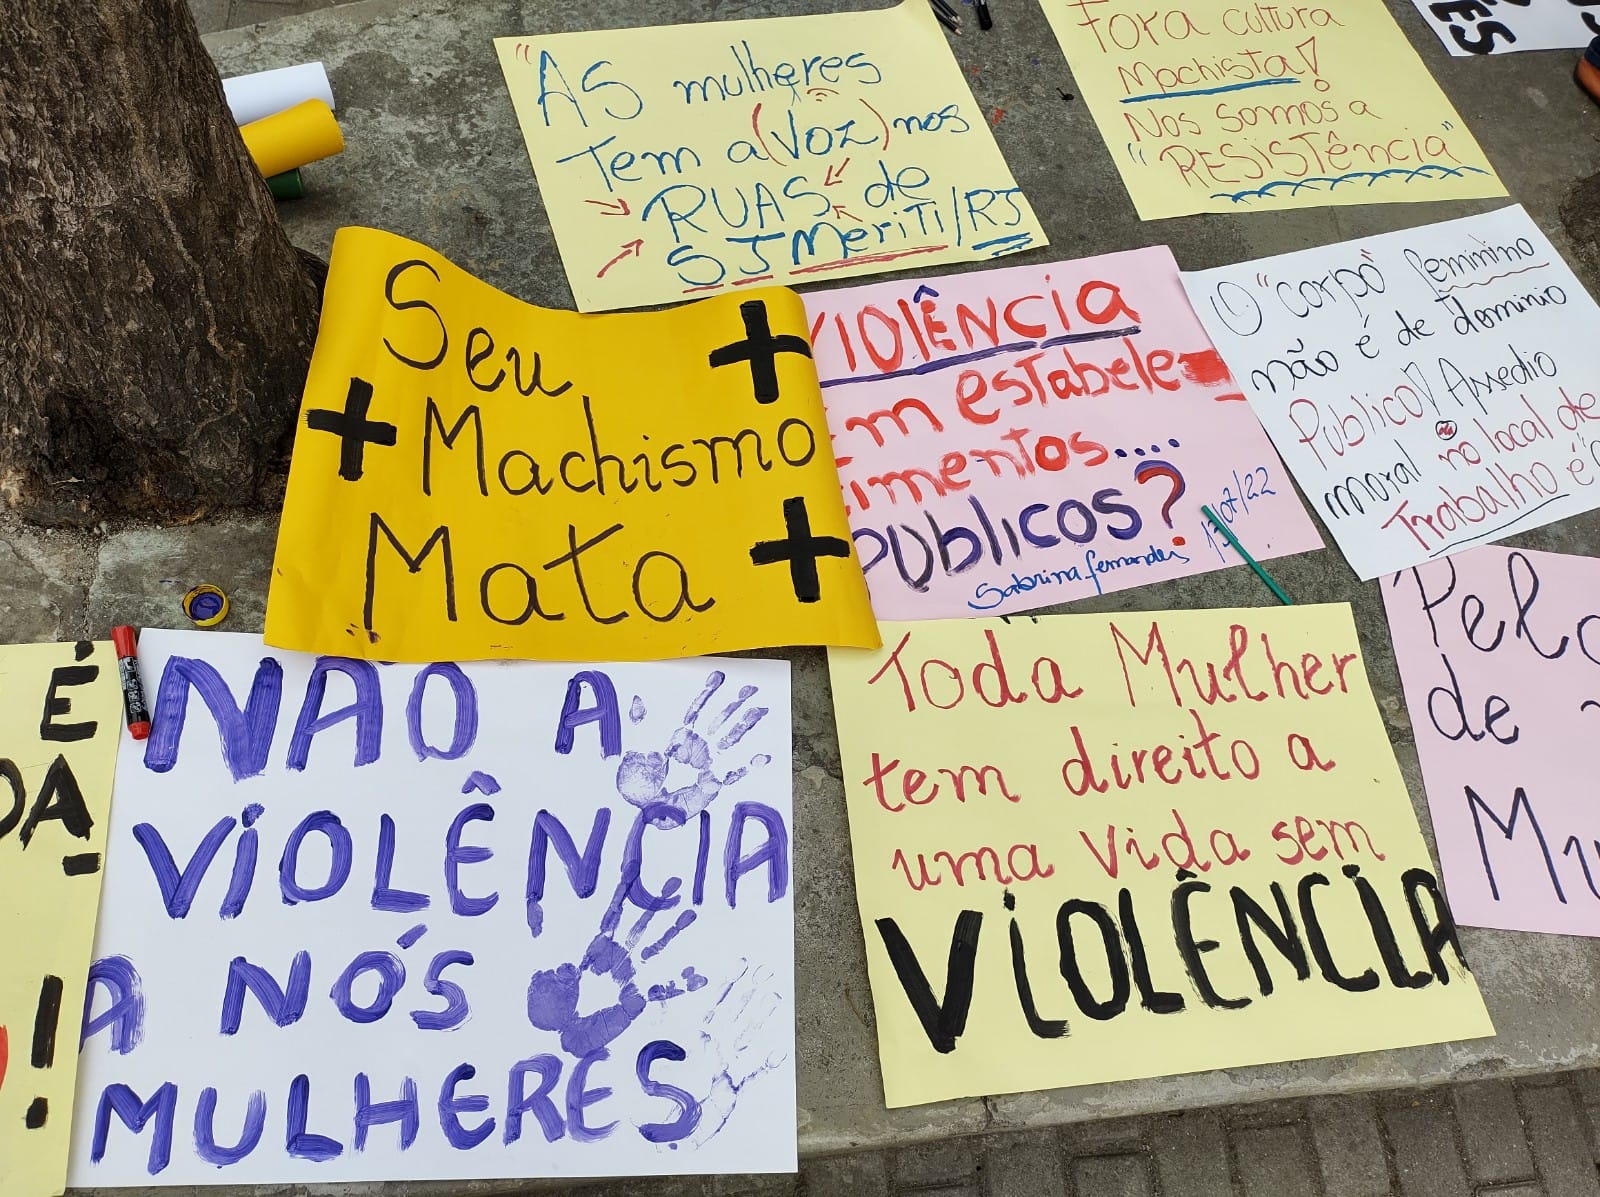 "AS mulheres
Tem a (voz) nos
RUAS de
SJ MeriTi/RJ
Fora cultura
Machista!
Nos somos a
"RESISTência"
ES
Seu
Machismo
Mata
VIOLÊNcia
em estabele-
cimentos....
PúblicOS?
Sabrina fernandes
07/22
O "corpo" feminino
não é de dominio
Público! Assedio
moral no local de
Trabalho é
NÃO A
ViOLÊNCIA
A NÓS
MULHERES
Toda Mulher
tem direito a
uma vida sem
ViOLÊNCiA
Pel
de
M
É
DA
!